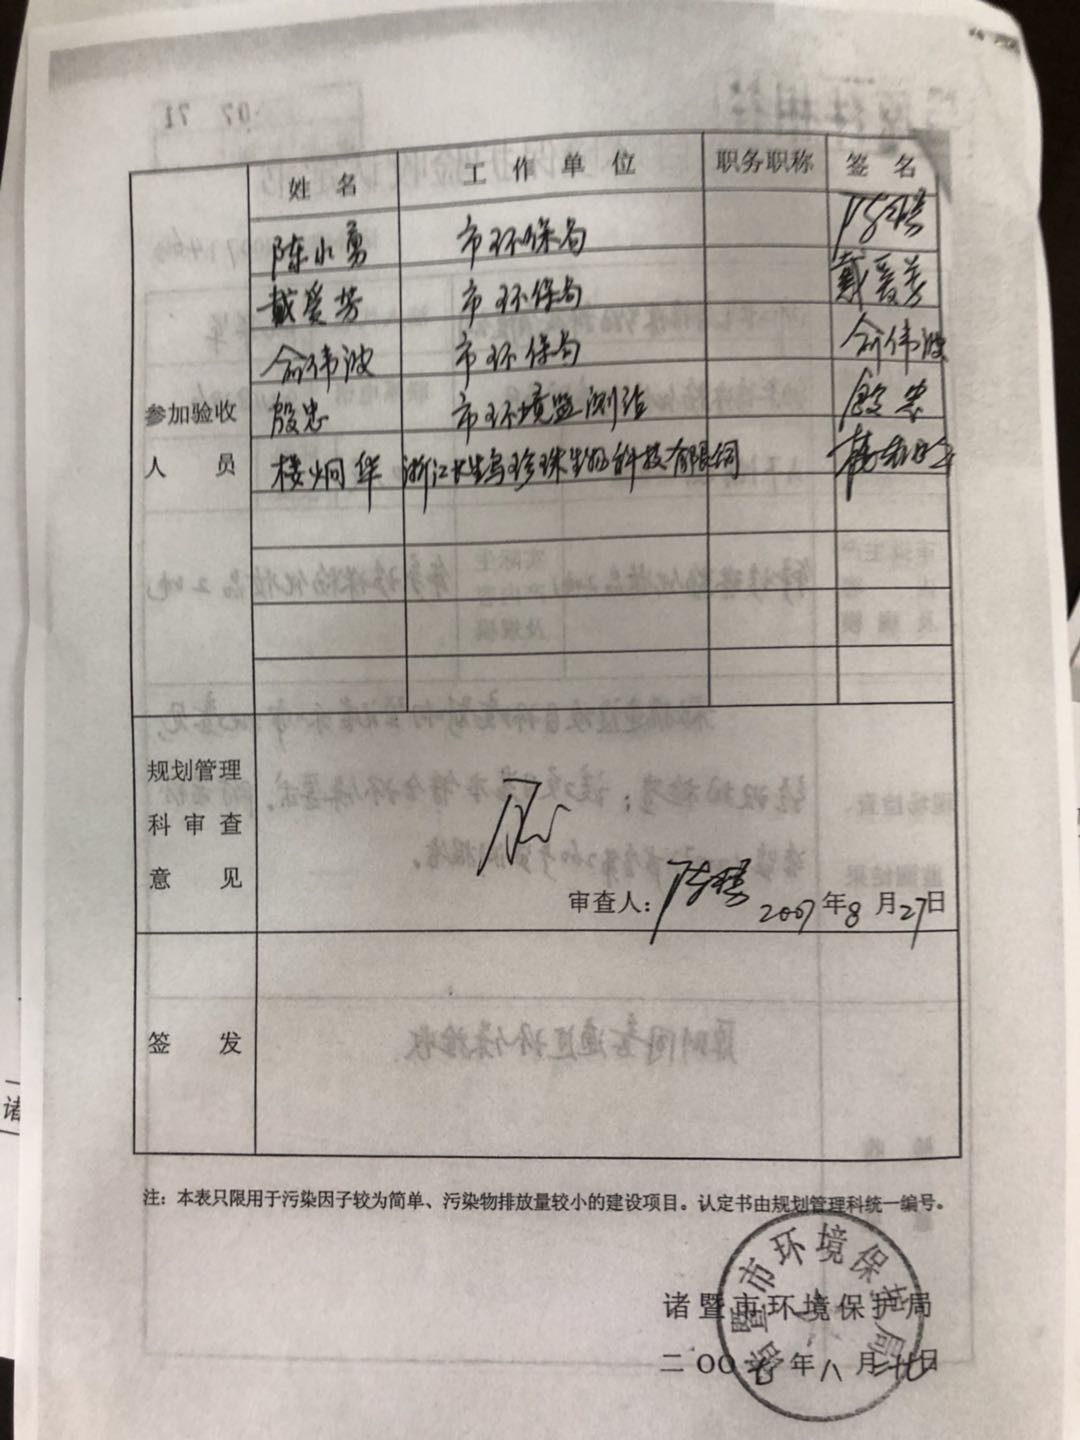 姓 名 工 作 单 位 职务职称 签 名
陈水勇 市环保局
戴爱芳 市环保局 戴爱芳
俞伟波 市环保局 俞伟波
参加验收 殷忠 市环境监测站 殷忠
人 员 楼炯华 浙江长生鸟珍珠生物科技有限公司
规划管理
科 审 查
意 见
审查人: 2007年8月27日
签 发
注: 本表只限用于污染因子较为简单、污染物排放量较小的建设项目。认定书由规划管理科统一编号。
诸暨市环境保护局
诸暨市环境保护局
二〇〇七年八月二十七日